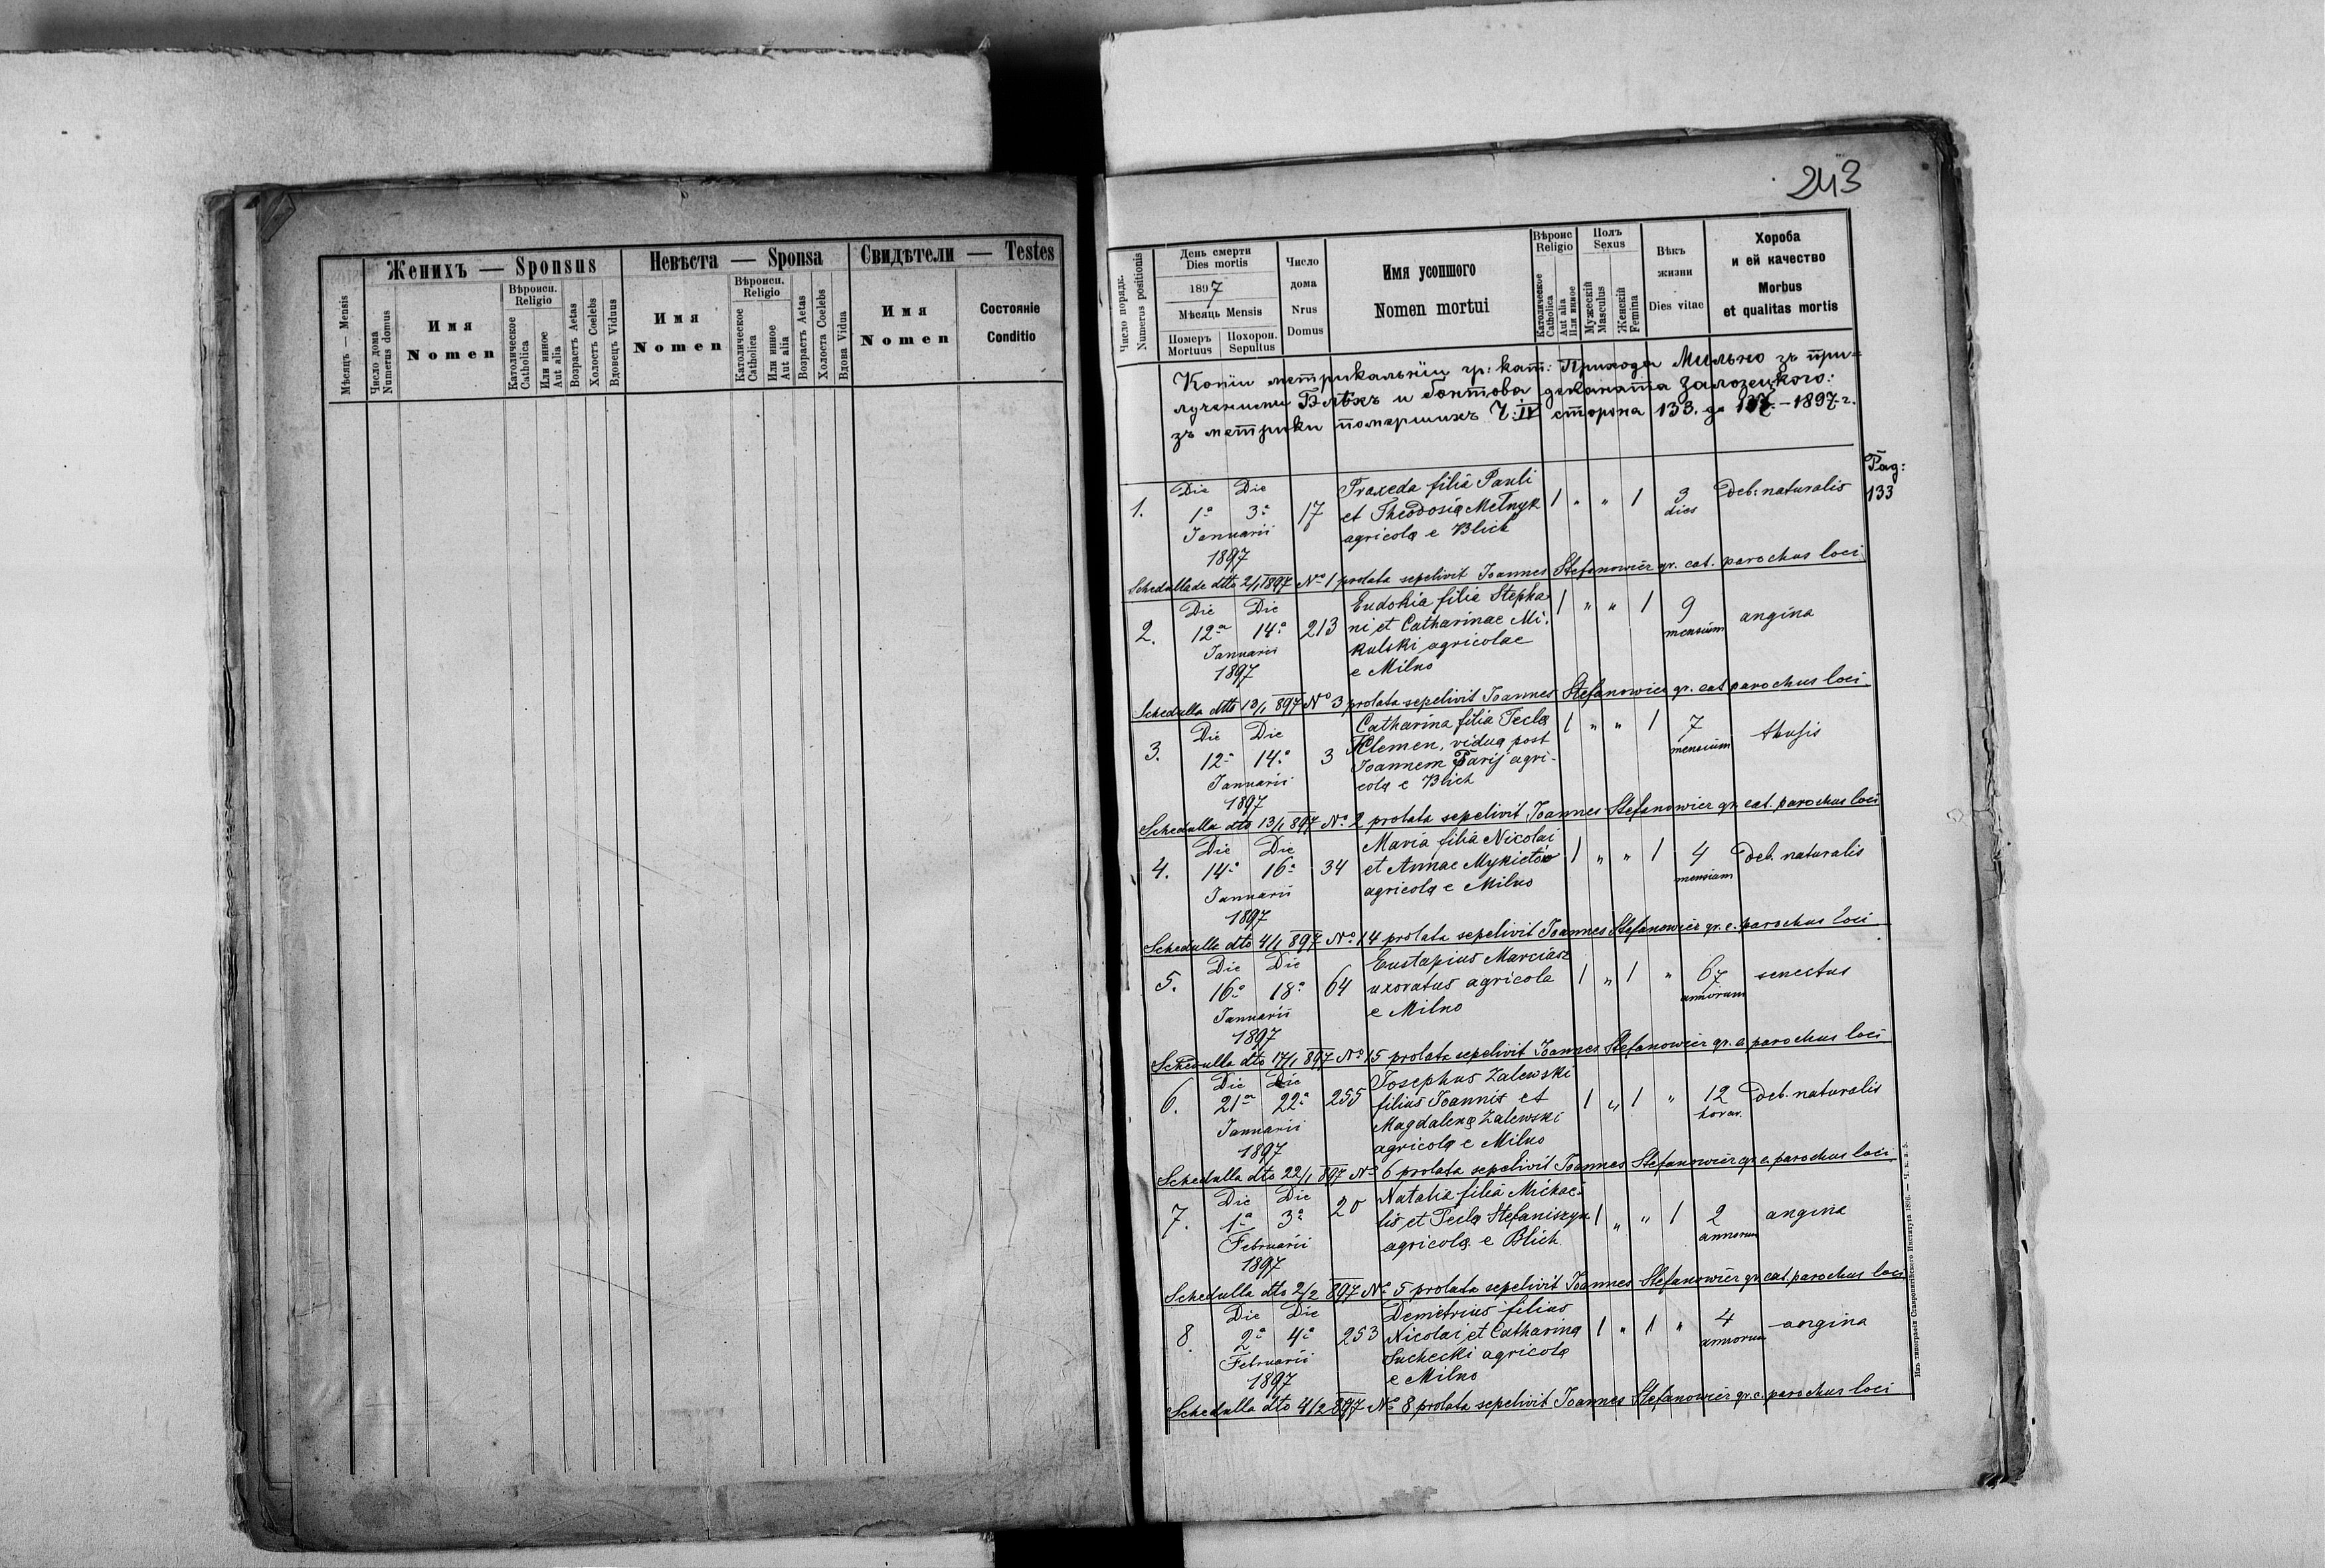 Женихъ — Sponsus
Невѣста — Sponsa
Свидѣтели — Testes
Мѣсяць — Mensis
Число дома
Numerus domus
Имя
Nomen
Вѣроисп.
Religio
Католическое
Catholica
Или инное
Aut alia
Возрастъ Aetas
Холостъ Coelebs
Вдовецъ Viduus
Имя
Nomen
Вѣроисп.
Religio
Католическое
Catholica
Или инное
Aut alia
Возрастъ Aetas
Холоста Coelebs
Вдова Vidua
Имя
Nomen
Состояніе
Conditio
243
Число порядк.
Numerus positionis
День смерти
Dies mortis
1897
Мѣсяць Mensis
Померъ
Mortuus
Похорон.
Sepultus
Число
дома
Nrus
Domus
Имя усопшого
Nomen mortui
Вѣроис
Religio
Католическое
Catholica
Aut alia
Или инное
Полъ
Sexus
Мужескій
Masculus
Женскій
Femina
Вѣкъ
жизни
Dies vitae
Хороба
и ей качество
Morbus
et qualitas mortis
Копіи метрикальніи гр: кат: Прихода Мильно зъ при=
лученіями Блѣхъ и Гонтова деканата Залозецкого:
зъ метрики помершихъ Ч: IV сторона 133. до 137. – 1897 г.
Pag:
133
1.
Die Die
1a 3a
Januarii
1897
17
Praxeda filia Pauli
et Theodosia Melnyk
agricola e Blich
1 " " 1
3
dies
Deb: naturalis
Schedulla de dtto 2/1 1897 No 1 prolata sepelivit Joannes Stefanowicz gr. cat. parochus loci
2.
Die Die
12a 14a
Januarii
1897
213
Eudokia filia Stepha
ni et Catharinae Mi.
kulski agricolae
e Milno
1 " " 1
9
mensium
angina
Schedulla dtto 13/1 897 No 3 prolata sepelivit Joannes Stefanowicz gr. cat parochus loci
3.
Die Die
12a 14a
Januarii
1897
3
Catharina filia Tecla
Klemen, vidua post
Joannem Parij agri-
cola e Blich
1 " " 1
7
mensium
thusis
Schedulla dto 13/1 897 No 2 prolata sepelivit Joannes Stefanowicz gr. cat. parochus loci
4.
Die Die
14a 16a
Januarii
1897
34
Maria filia Nicolai
et Annae Mykietów
agricola e Milno
1 " " 1
4
mensium
Deb. naturalis
Schedulla dto 4/1 897 No 14 prolata sepelivit Joannes Stefanowicz gr. c. parochus loci
5.
Die Die
16a 18a
Januarii
1897
64
Eustapius Marciász
uxoratus agricola
e Milno
1 " 1 "
67
annorum
senectus
Schedulla dto 17/1 897 No 15 prolata sepelivit Joannes Stefanowicz gr. c. parochus loci
6.
Die Die
21a 22a
Januarii
1897
255
Josephus Zalewski
filius Joannis et
Magdalena Zalewski
agricola e Milno
1 " 1 "
12
horar.
deb. naturalis
Schedulla dto 22/1 897 No 6 prolata sepelivit Joannes Stefanowicz gr. c. parochus loci
7.
Die Die
1a 3a
Februarii
1897
20
Natalia filia Michae-
lis et Tecla Stefaniszyn
agricola e Blich
1 " " 1
2
annorum
angina
Schedulla dto 2/2 897 No 5 prolata sepelivit Joannes Stefanowicz gr. cat. parochus loci
8.
Die Die
2a 4a
Februarii
1897
253
Demetrius filius
Nicolai et Catharina
Suchecki agricola
e Milno
1 " 1 "
4
annorum
angina
Schedulla dto 4/2 897 No 8 prolata sepelivit Joannes Stefanowicz gr. c. parochus loci
Изъ типографіи Ставропигійского Института 1896. — Ч. к. а 5.